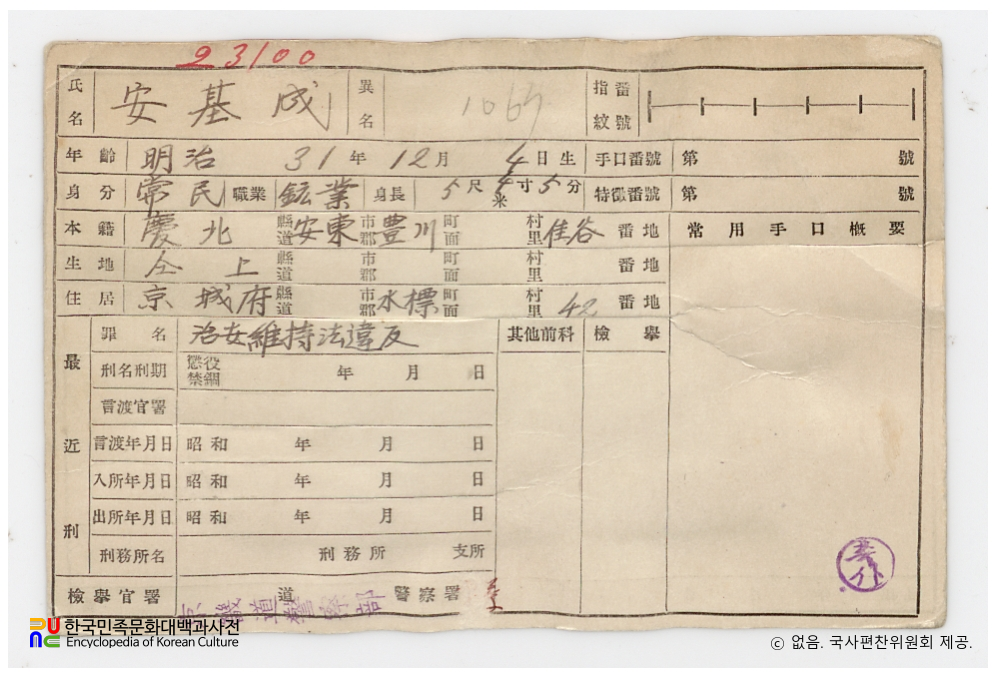 23100
氏名 安基成 異名 1065 指紋番號
年齡 明治 31年 12月 4日生 手口番號 第 號
身分 常民 職業 鉱業 身長 5尺 寸 5分 米 特徵番號 第 號
本籍 慶北 縣道 安東 市郡 豊川 町面 村里 佳谷 番地 常用手口槪要
生地 仝上 縣道 市郡 町面 村里 番地
住居 京城府 縣道 市郡 水標 町面 村里 42 番地
最近刑
罪名 治安維持法違反 其他前科 檢擧
刑名刑期 懲役 禁錮 年 月 日
言渡官署
言渡年月日 昭和 年 月 日
入所年月日 昭和 年 月 日
出所年月日 昭和 年 月 日
刑務所名 刑務所 支所
檢擧官署 道 警察署
京畿道警察部
한국민족문화대백과사전
Encyclopedia of Korean Culture
ⓒ 없음. 국사편찬위원회 제공.